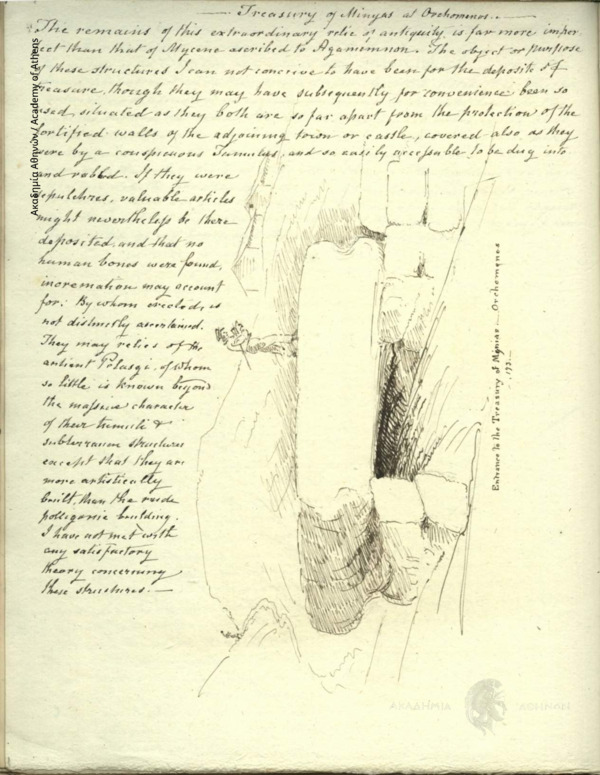 Treasury of Minyas at Orchomenos.
The remains of this extraordinary relic of antiquity is far more imper
fect than that of Mycene ascribed to Agamemnon. The object or purpose
of these structures I can not conceive to have been for the deposite of
treasure, though they may have subsequently for convenience been so
used, situated as they both are so far apart from the protection of the
fortified walls of the adjoining town or castle, covered also as they
were by a conspicuous Tumulus, and so easily accessable to be dug into
and robbed. If they were
sepulchres, valuable articles
might nevertheless be there
deposited, and that no
human bones were found,
incremation may account
for: By whom erected, is
not distinctly ascertained.
They may relics of the
antient Pelasgi, of whom
so little is known beyond
the massive character
of their tumuli &
subterranean structures
except that they are
more artistically
built, than the rude
poligonic building.
I have not met with
any satisfactory
theory concerning
these structures.—
Entrance to the Treasury of Mynias — Orchomenos
. 193.—
Ακαδημία Αθηνών / Academy of Athens
ΑΚΑΔΗΜΙΑ ΑΘΗΝΩΝ